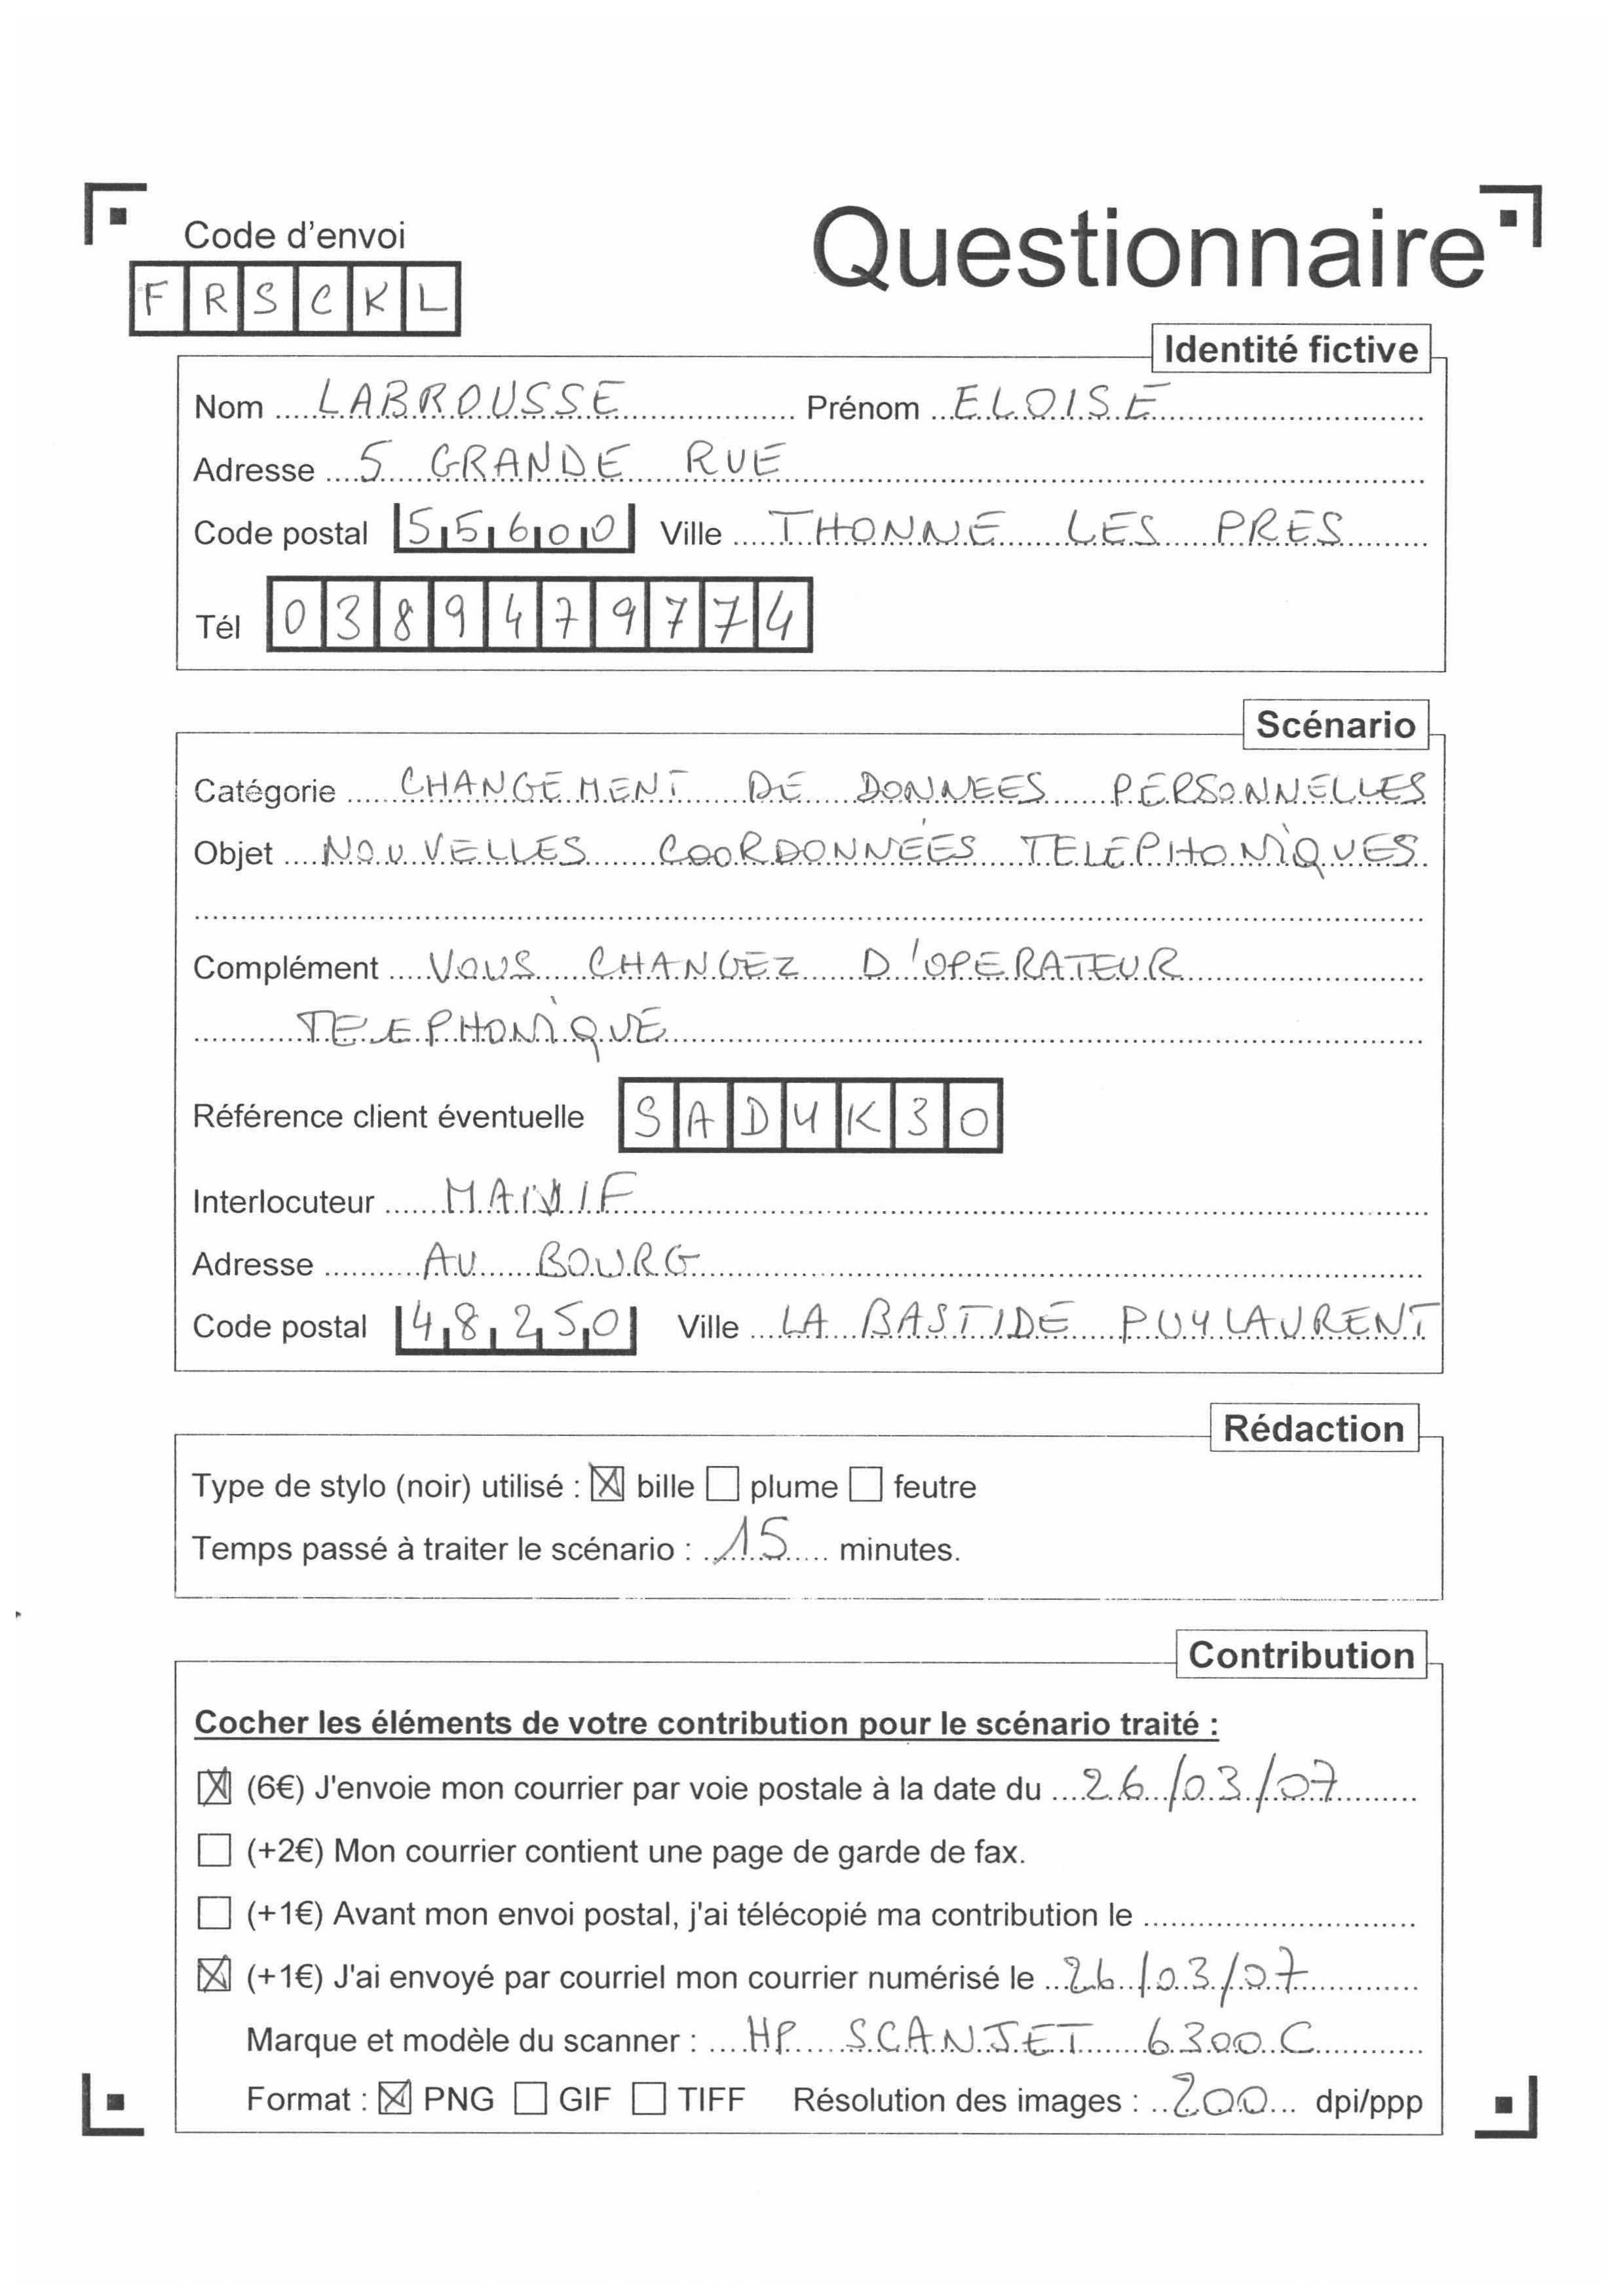 Code d'envoi
Questionnaire
FRSCKL
Identité fictive
Nom LABROUSSE Prénom ELOISE
Adresse 5 GRANDE RUE
Code postal 55600 Ville THONNE LES PRES
Tél 0389479774
Scénario
Catégorie CHANGEMENT DE DONNEES PERSONNELLES
Objet NOUVELLES COORDONNÉES TELEPHONIQUES
Complément VOUS CHANGEZ D'OPERATEUR
TELEPHONIQUE
Référence client éventuelle SADYK30
Interlocuteur
Adresse AU BOURG
Code postal 48250 Ville LA BASTIDE PUYLAURENT
Rédaction
Type de stylo (noir) utilisé : ☒ bille ☐ plume ☐ feutre
Temps passé à traiter le scénario : 15 minutes.
Contribution
Cocher les éléments de votre contribution pour le scénario traité :
☒ (6€) J'envoie mon courrier par voie postale à la date du 26/03/07
☐ (+2€) Mon courrier contient une page de garde de fax.
☐ (+1€) Avant mon envoi postal, j'ai télécopié ma contribution le
☒ (+1€) J'ai envoyé par courriel mon courrier numérisé le 26/03/07
Marque et modèle du scanner : HP SCANJET 6300C
Format : ☒ PNG ☐ GIF ☐ TIFF Résolution des images : 200 dpi/ppp